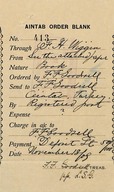 AINTAB ORDER BLANK
No. 413
Through F. H. Wiggin
From See the attached page
Nature Book
Ordered by F. F. Goodsell
Send to F. F. Goodsell
Aintab, Turkey
By Registered post
Expense
Charge in a/c to
F. F. Goodsell
Payment Deposit
Date November
F. F. Goodsell